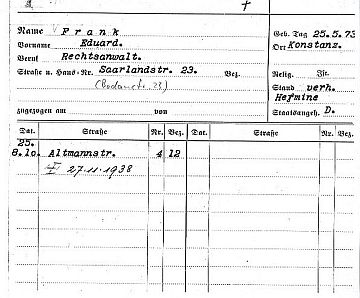 Name Frank
Vorname Eduard.
Beruf Rechtsanwalt.
Straße u. Haus-Nr. Saarlandstr. 23. Bez.
(Bodanstr. 23)
zugezogen am von
Geb. Tag 25.5.73
Ort Konstanz.
Relig.
Stand verh.
Hermine
Staatsangeh. D.
Dat. Straße Nr. Bez. Dat. Straße Nr. Bez.
25.
8.10. Altmannstr. 4 12
27.11.1938